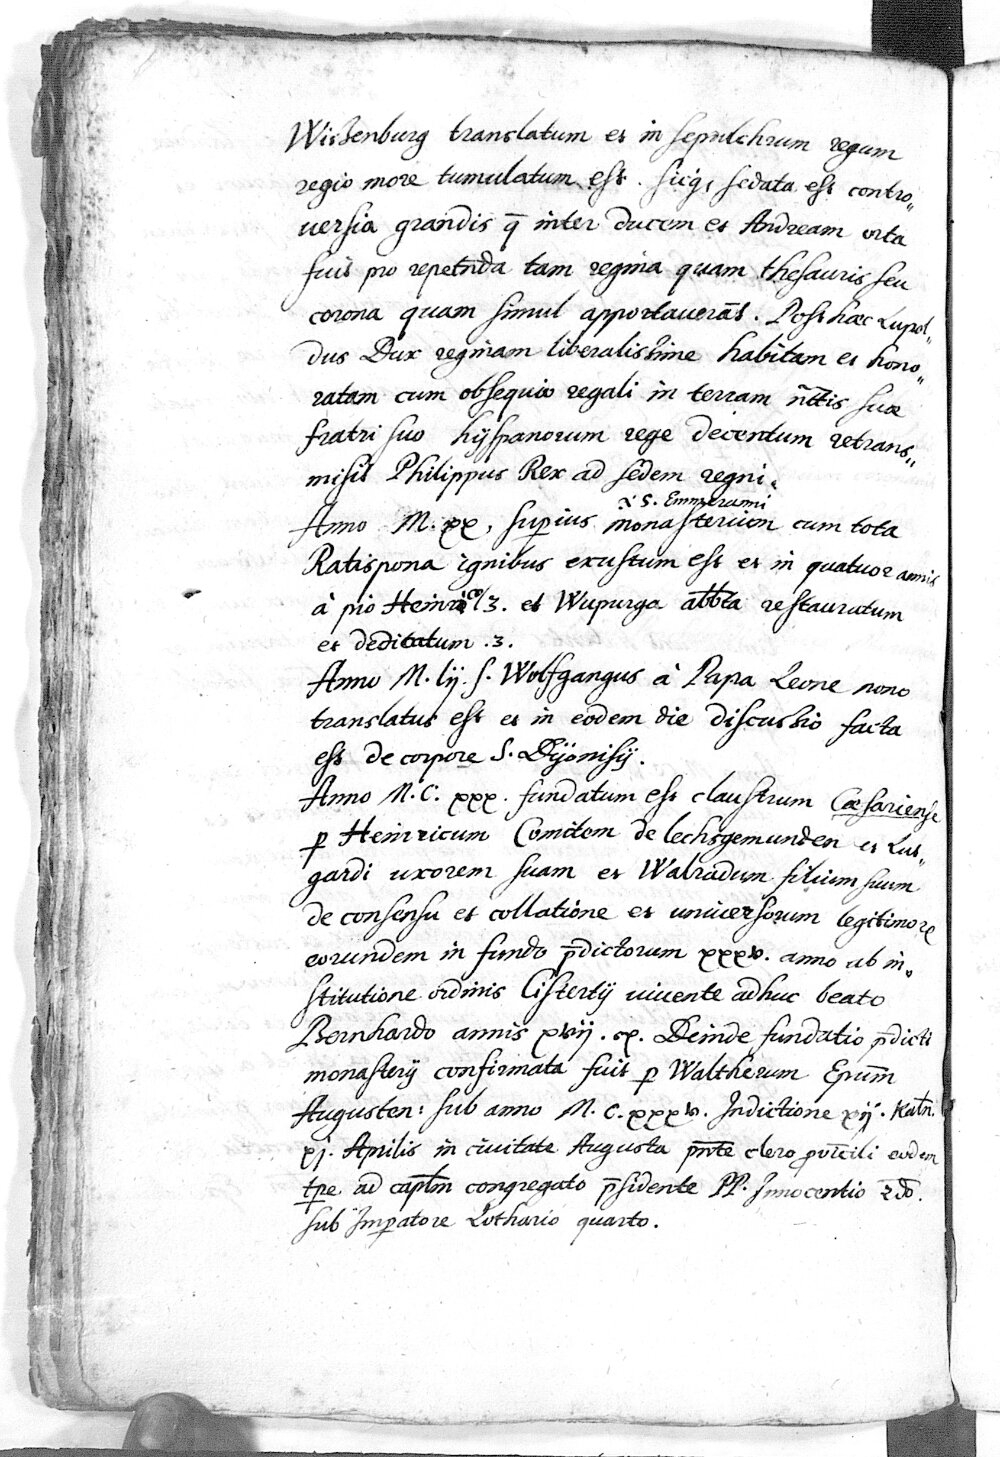 Wissenburg translatum et in sepulchrum regum
regio more tumulatum est. sicq, sedata est contro„
uersia grandis q̄ inter ducem et Andream orta
fuit pro repetēda tam regina quam thesauris seu
corona quam simul apportauerāt. Post haec Lupol„
dus Dux reginam liberalissime habitam et hono„
ratam cum obsequio regali in terram suae
fratri suo hÿspanorum rege decentum retrans„
misit Philippus Rex ad sedem regni.
S. Emmerami
Anno M. xx, supius monasterium cum tota
Ratispona ignibus exustum est et in quatuor annis
à pio Heinrico 3. et Wupurga abb̄ta restauratum
et deditatum .3.
Anno M. lij. S. Wolfgangus à Papa Leone nono
translatus est et in eodem die discussio facta
est de corpore S. Dÿonisÿ.
Anno M. C. xxx. fundatum est claustrum Caesariense
p Heinricum Comitem de lechsgemunden et Lut„
gardi uxorem suam et Walradum filium suum
de consensu et collatione et uniuersorum legitimorꝝ
eorundem in fundo p̄dictorum xxxv. anno ab in„
stitutione ordinis Cistertÿ viuente adhuc beato
Bernhardo annis xvij. Deinde fundatio p̄dicti
monasterÿ confirmata fuit p Waltherum Epum̄
Augusten: sub anno M. C. xxxv. Indictione xij. Kaln̄.
xj. Aprilis in ciuitate Augusta pn̄te clero eodem
tpe ad captm̄ congregato p̄sidente PP. Innocentio 2do.
sub Impatore Lothario quarto.